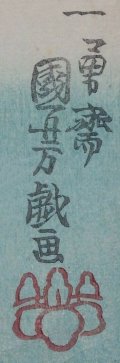 一勇齋
國芳戯画